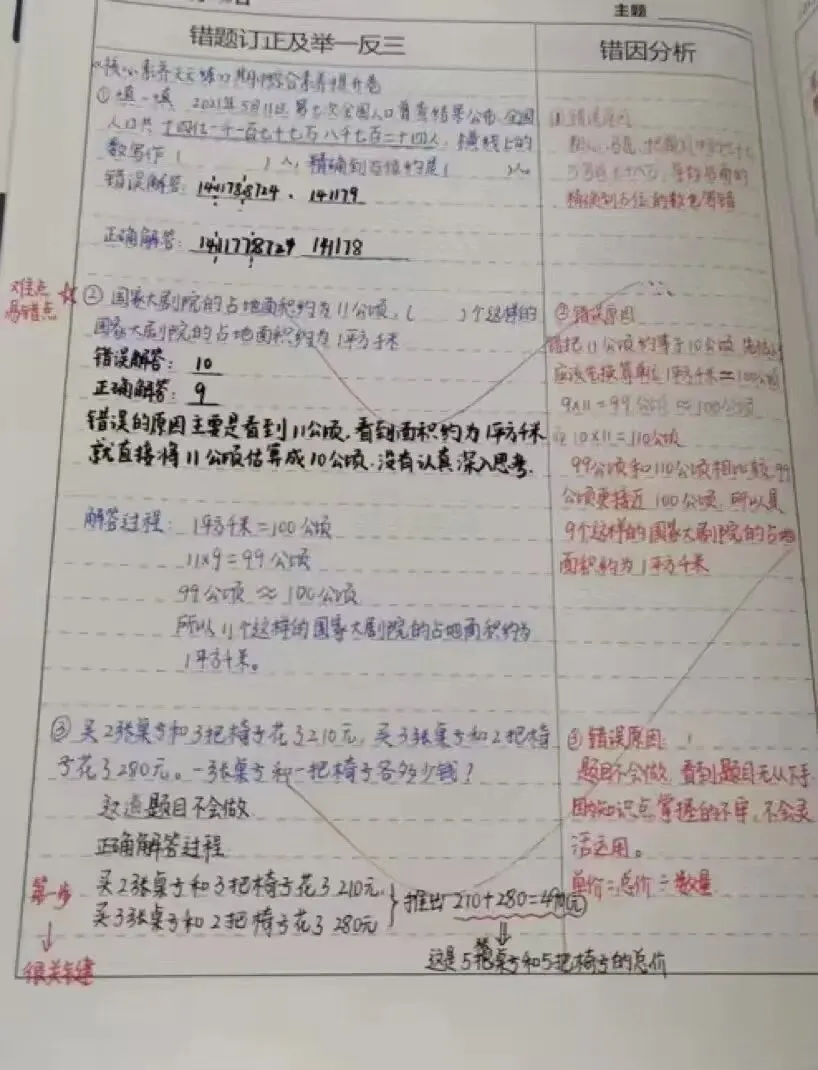 主题
错题订正及举一反三
错因分析
①填一填 2021年5月11日第七次全国人口普查结果公布,全国
人口共十四亿一千一百七十七万八千七百二十四人,横线上的
数写作( )人,精确到万位约是( )人
错误解答: 141178724、141179
正确解答: 1411778724 141178
①错误原因
粗心马虎
精确到万位的数也写错
难点
易错点
②国家大剧院的占地面积约为11公顷,( )个这样的
国家大剧院的占地面积约为1平方千米
错误解答: 10
正确解答: 9
错误的原因主要是看到11公顷,看到面积约为1平方千米
就直接将11公顷估算成10公顷,没有认真深入思考.
解答过程: 1平方千米=100公顷
11×9=99公顷
99公顷≈100公顷
所以11个这样的国家大剧院的占地面积约为
1平方千米。
②错误原因
错把11公顷约等于10公顷,
应该先换算单位1平方千米=100公顷
9×11=99公顷≈100公顷
10×11=110公顷
99公顷和110公顷相比较,99
公顷更接近100公顷,所以是
9个这样的国家大剧院的占地
面积约为1平方千米
③买2张桌子和3把椅子花了210元,买3张桌子和2把椅
子花了280元。一张桌子和一把椅子各多少钱?
这道题目不会做
正确解答过程
第一步
很关键
买2张桌子和3把椅子花了210元
买3张桌子和2把椅子花了280元
推出210+280=490(元)
这是5张桌子和5把椅子的总价
③错误原因
题目不会做,看到题目无从下手
因为知识点掌握的不牢,不会灵
活运用。
单价=总价÷数量